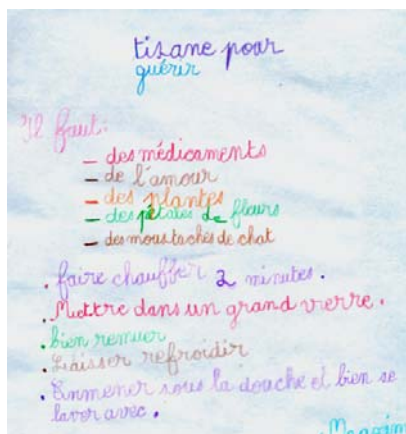 tisane pour
guérir
Il faut:
– des médicaments
– de l'amour
– des plantes
– des pétales de fleurs
– des moustaches de chat
. faire chauffer 2 minutes.
. Mettre dans un grand verre.
. bien remuer
. Laisser refroidir
. Enmener sous la douche et bien se
laver avec.